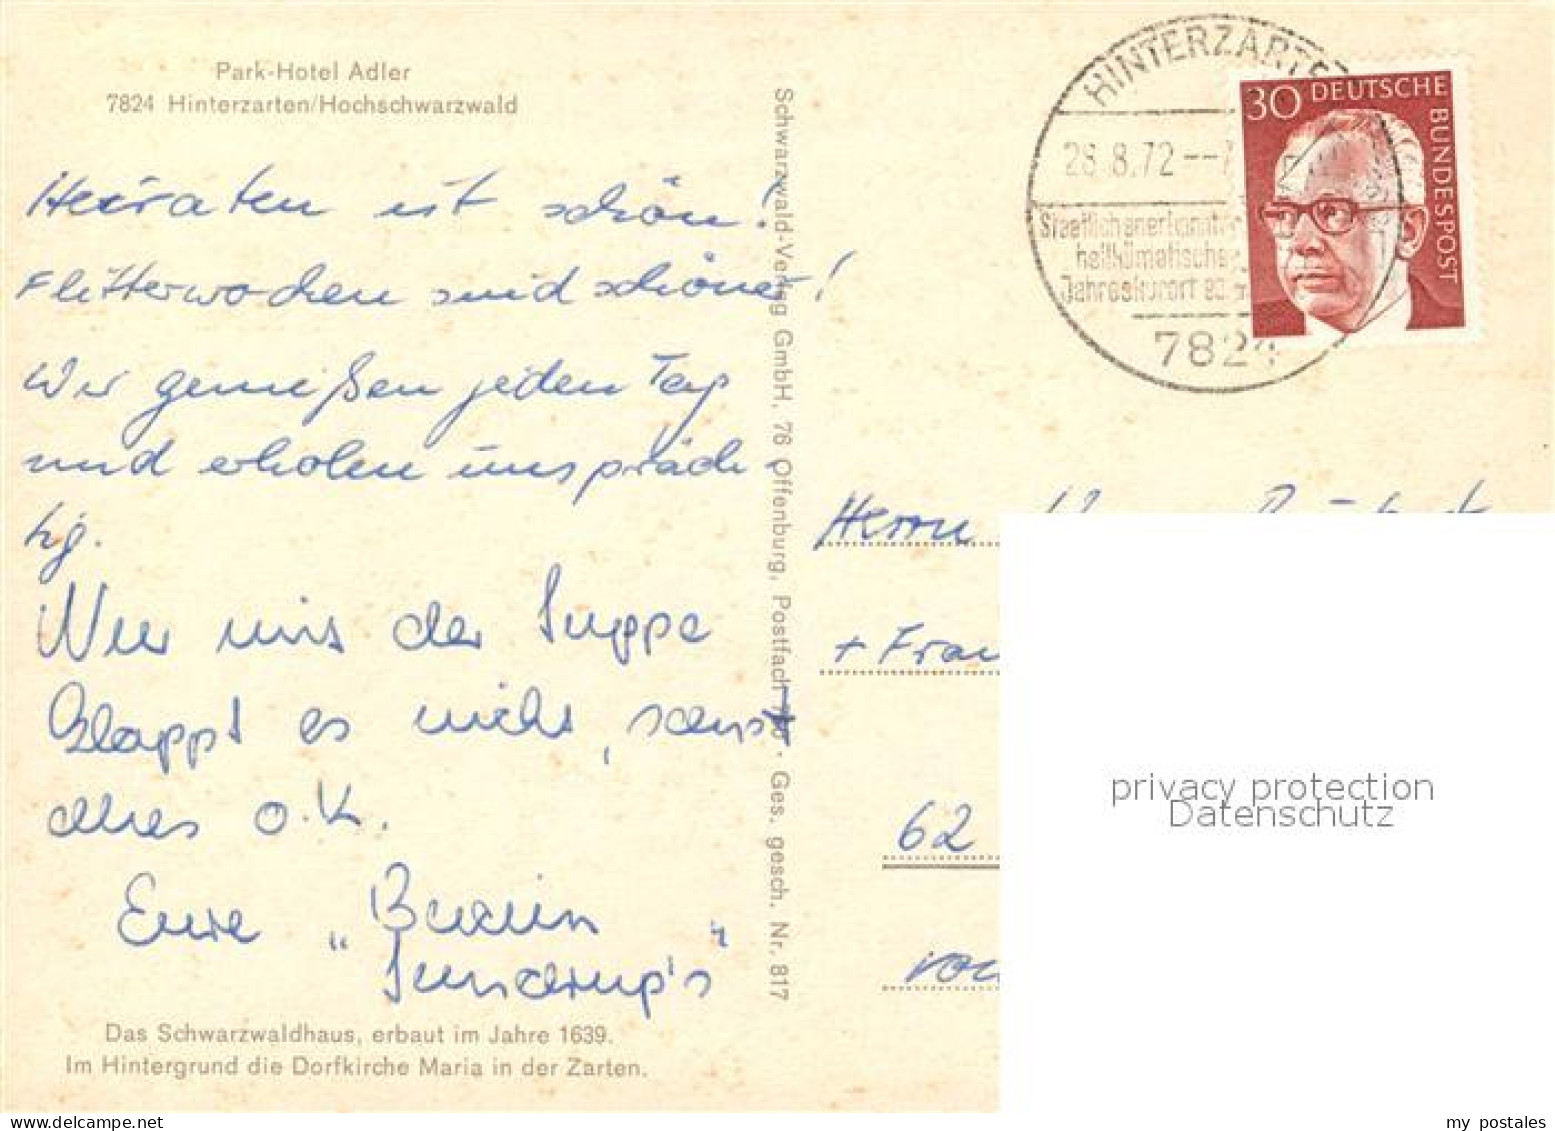 Park-Hotel Adler
7824 Hinterzarten/Hochschwarzwald
Heiraten ist schön!
Flitterwochen sind schöner!
Wir genießen jeden Tag
und erholen uns präch-
tig.
Nur mis der Suppe
klappt es nicht, sonst
alles o.K.
Eure „
Sundrup's"
Das Schwarzwaldhaus, erbaut im Jahre 1639.
Im Hintergrund die Dorfkirche Maria in der Zarten.
Schwarzwald-Verlag GmbH, 76 Offenburg, Postfach · Ges. gesch. Nr. 817
HINTERZARTE
28.8.72--7
Staatlich anerkannter
heilklimatischer
Jahreskurort
7824
30 DEUTSCHE
BUNDESPOST
Herrn
+ Frau
62
privacy protection
Datenschutz
my postales